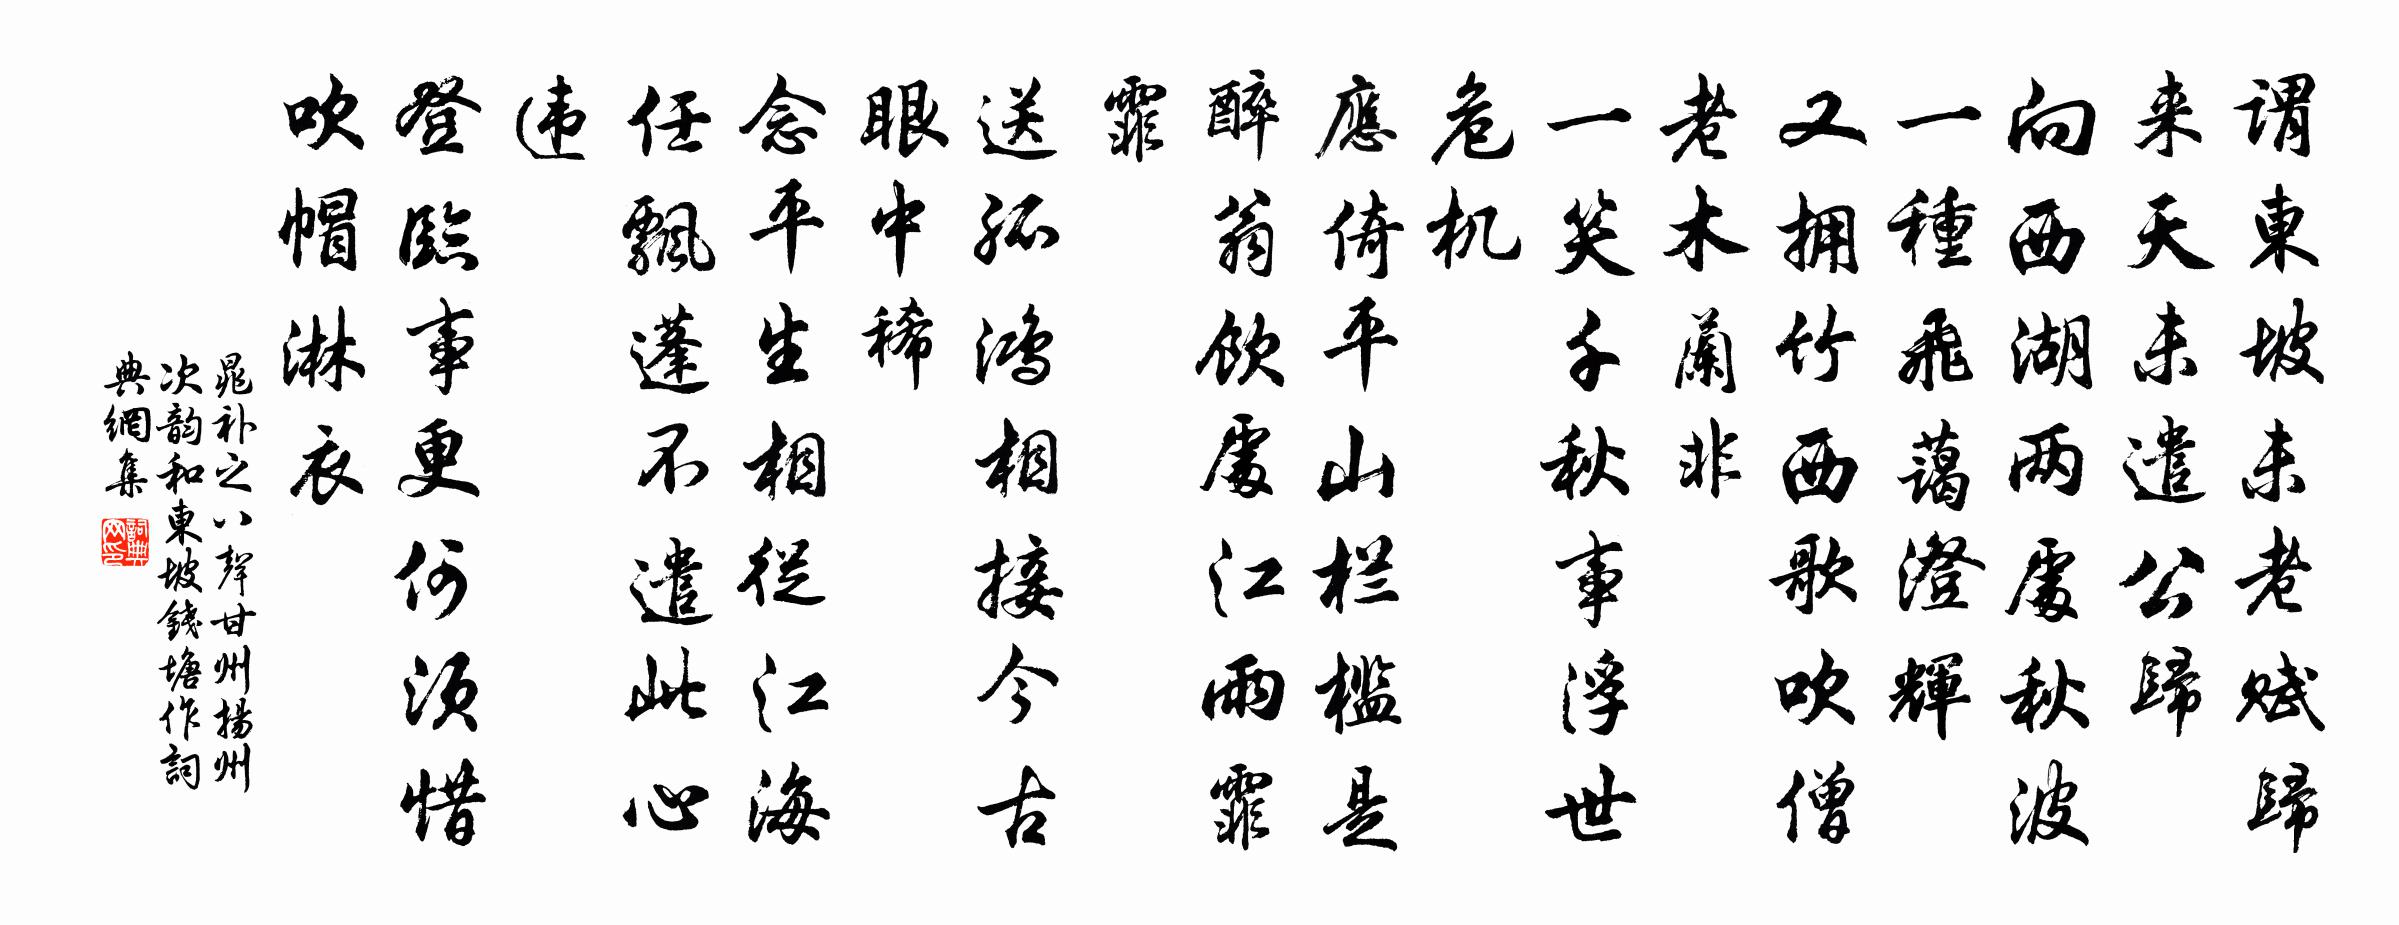 謂東坡未老賦歸
来天未遣公歸
向西湖两處秋波
一種飛藹澄輝
又拥竹西歌吹僧
老木蘭非
一笑千秋事浮世
危机
應倚平山栏槛是
醉翁飲處江雨霏
霏
送孤鴻相接今古
眼中稀
念平生相從江海
任飄蓬不遣此心
违
登臨事更何须惜
吹帽淋衣
晁补之八聲甘州揚州
次韵和東坡錢塘作詞
典網集
詞典
网印